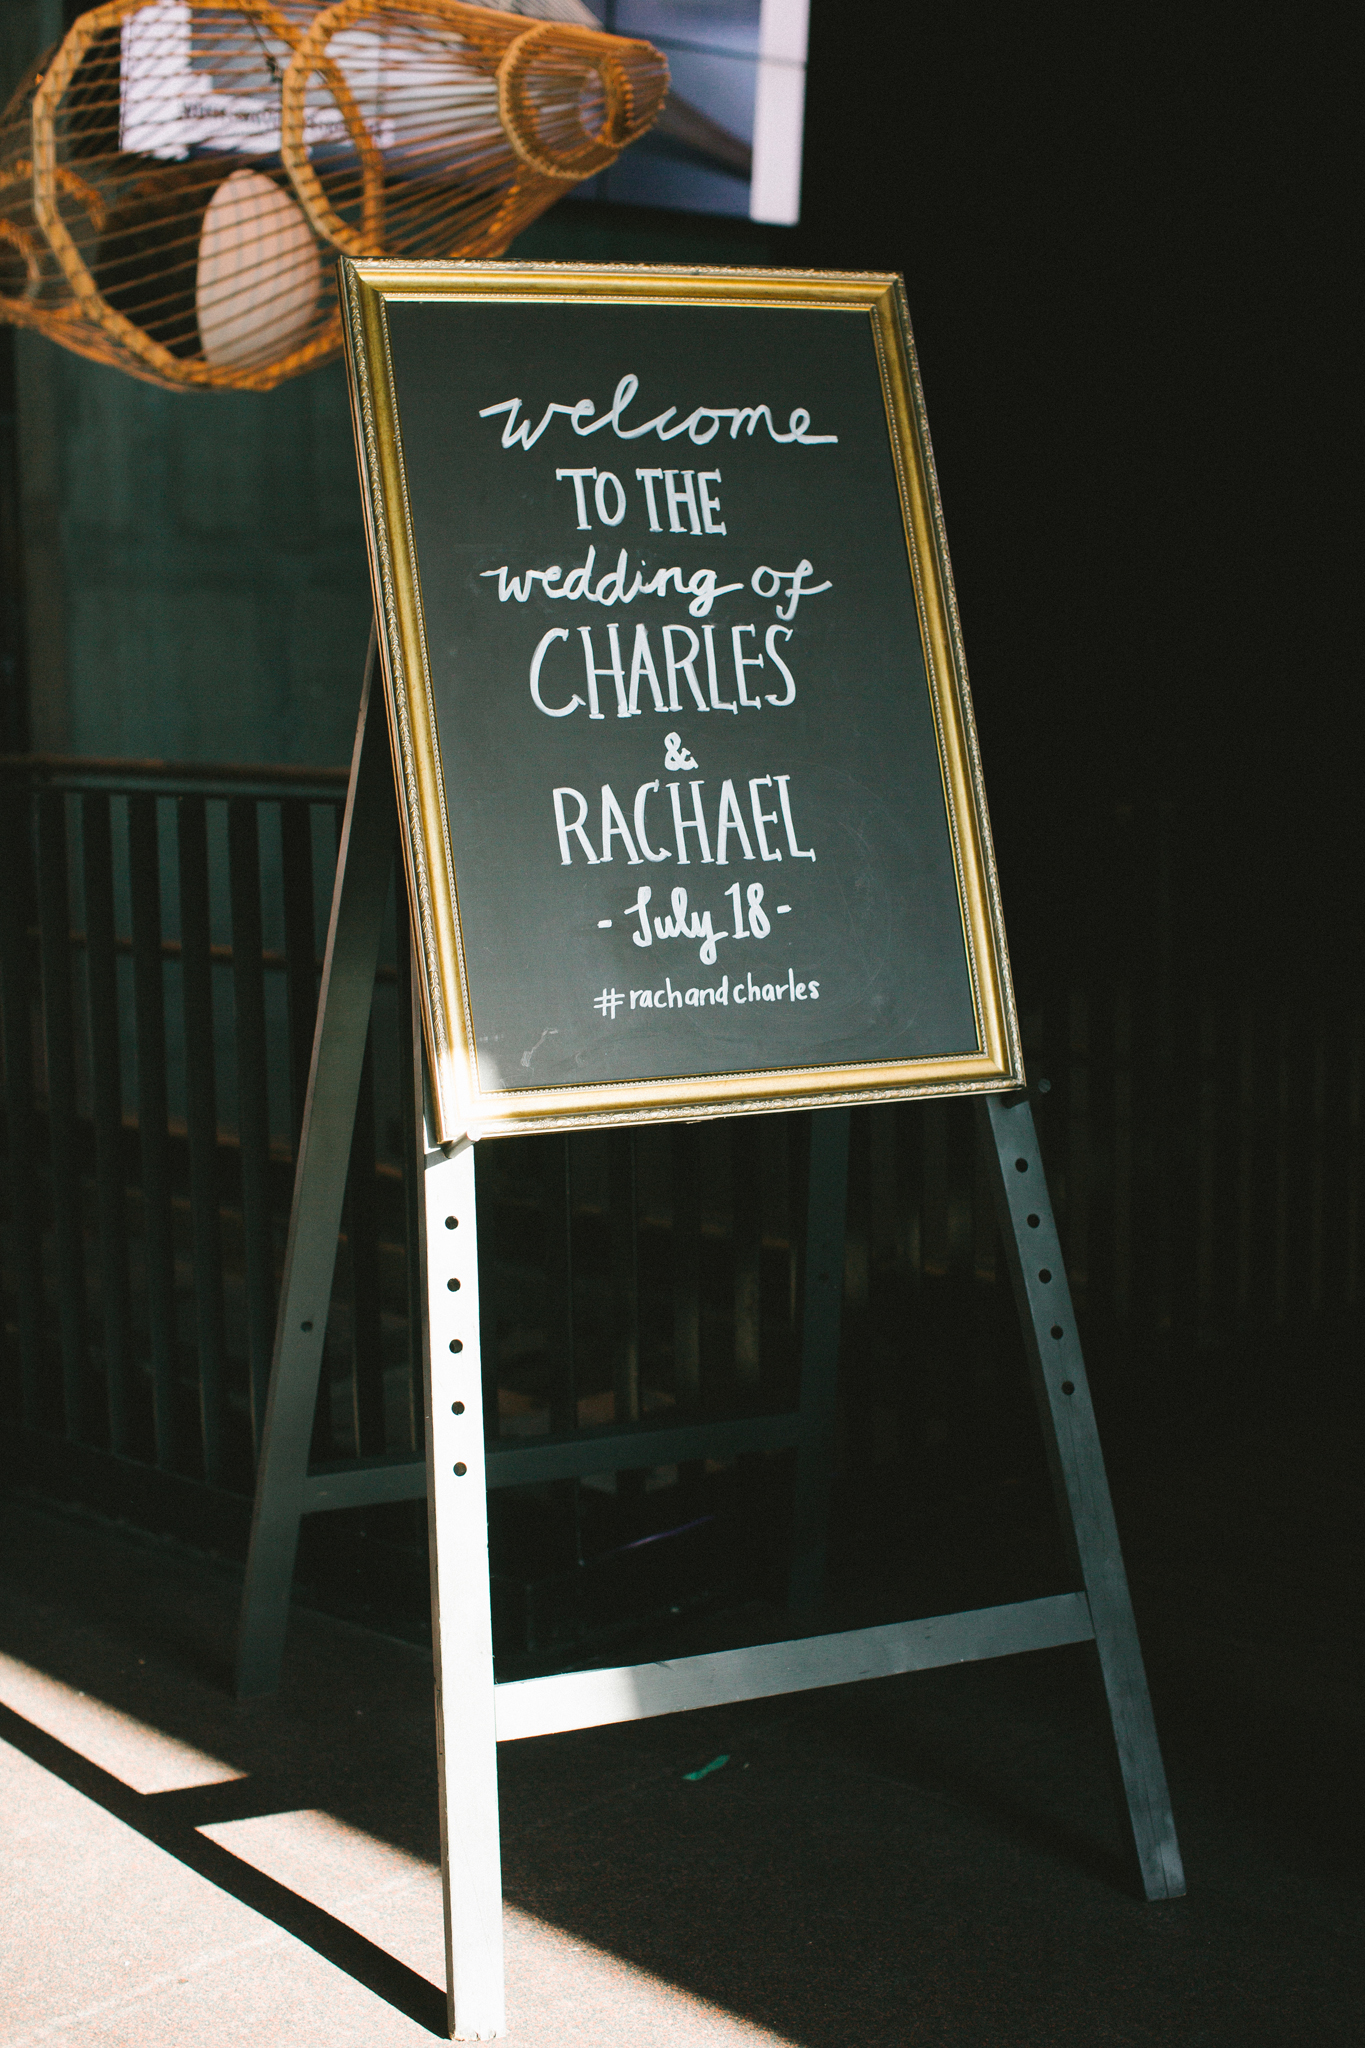 welcome
TO THE
wedding of
CHARLES
&
RACHAEL
- July 18 -
#rachandcharles